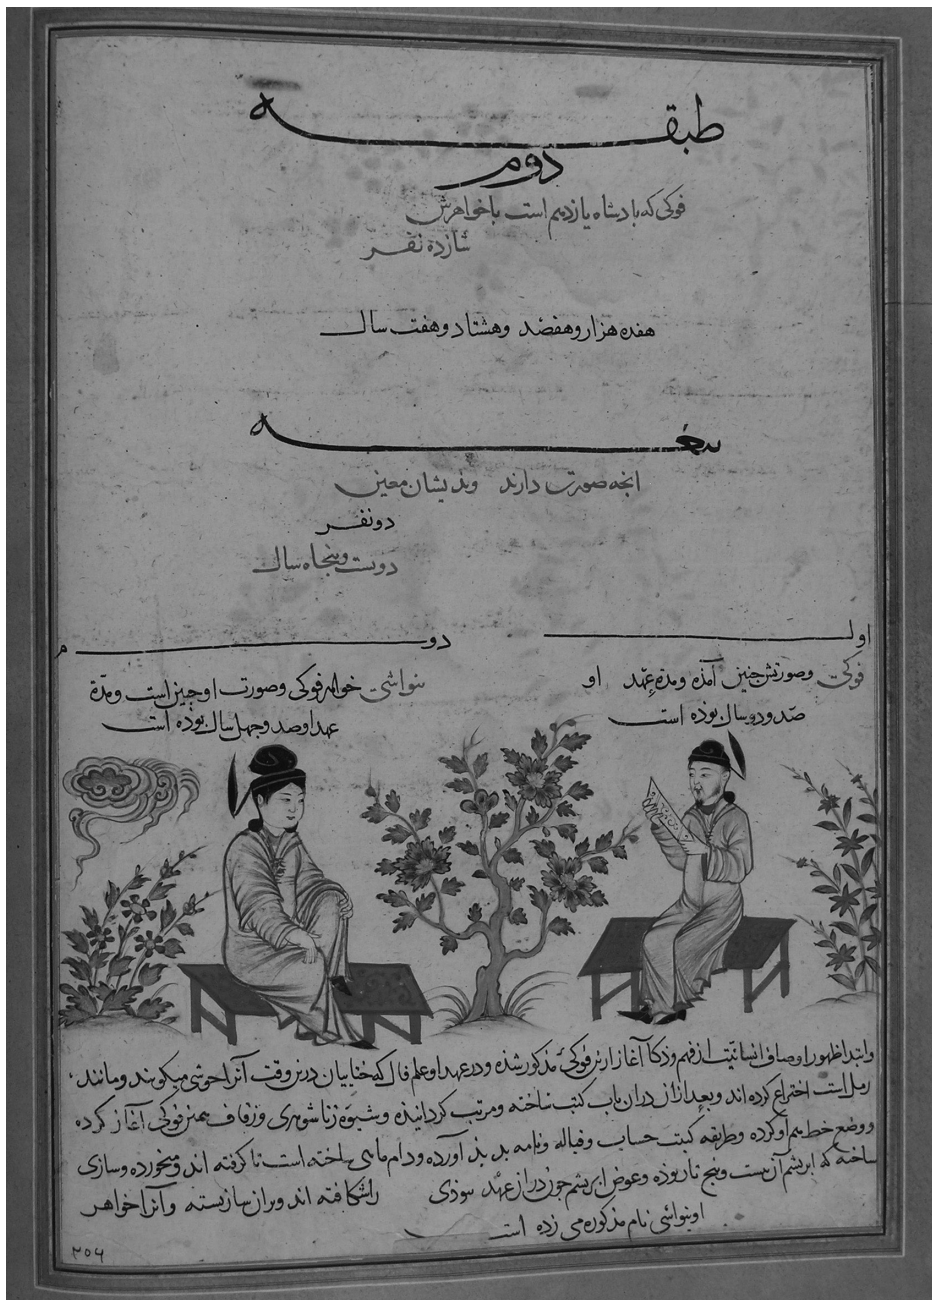 طبقه
دوم
فوکی که پادشاه یازدهم است باخواهرش
شازده نفر
هفده هزار و هفصد و هشتاد و هفت سال
انچه صورت دارند و بدیشان معین
دو نفر
دویست و پنجاه سال
اول
فوکی وصورتش چنین آمذه ومدة عهد او
صد و ده سال بوذه است
دوم
خواهر فوکی وصورت او چنین است ومدة
عهد او صد و چهل سال بوذه است
وابتداظهور اوصاف انسانیت از فهم وذکا آغاز ازین فوکی مذکور شذه ودر عهد او علم فال که ختاییان درین وقت آنرا میکویند ومانند
رمل است اختراع کرده اند وبعد از آن دران باب کتب ساخته ومرتب کردانیذه وشیوة زناشوهری وزفاف همین فوکی آغاز کرده
و وضع خط هم او کرده وطریقه کتبت حساب وقباله ونامه بدید آورده ودام ماهی ساخته است تا کرفته اند ومیخورده وسازی
ساخته که ابریشم آن بیست وپنج تار بوذه وعوض ابریشم چون دران عهد را شکافته اند وبران ساز بسته وآنرا خواهر
او نام مذکوره می زده است
۲۵۶